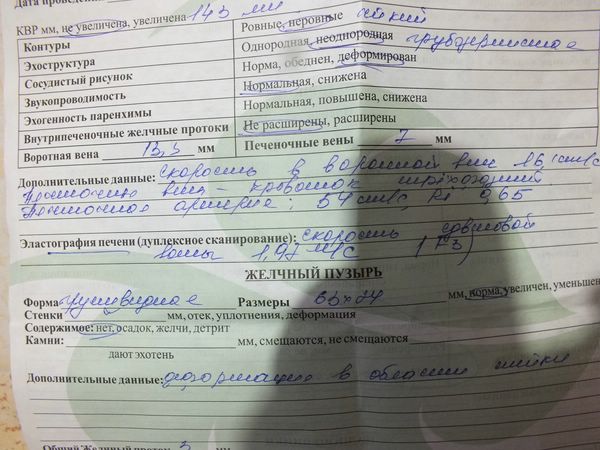 КВР мм, не увеличена, увеличена 143 мм
Контуры Ровные, неровные
Эхоструктура Однородная, неоднородная грубозернистая
Сосудистый рисунок Норма, обеднен, деформирован
Звукопроводимость Нормальная, снижена
Эхогенность паренхимы Нормальная, повышена, снижена
Внутрипеченочные желчные протоки Не расширены, расширены
Воротная вена 13,5 мм Печеночные вены 7 мм
Дополнительные данные: скорость в воротной вене 16,1 cm/c
Печеночные вены - кровоток трехфазный
Печеночная артерия: 54 cm/c, Ri 0,65
Эластография печени (дуплексное сканирование): скорость сдвиговой
волны 1,97 м/с (F3)
ЖЕЛЧНЫЙ ПУЗЫРЬ
Форма грушевидная Размеры 63x24 мм, норма, увеличен, уменьшен
Стенки мм, отек, уплотнения, деформация
Содержимое: нет, осадок, желчи, детрит
Камни: мм, смещаются, не смещаются
дают эхотень
Дополнительные данные: деформация в области шейки
Общий Желчный проток 3 мм